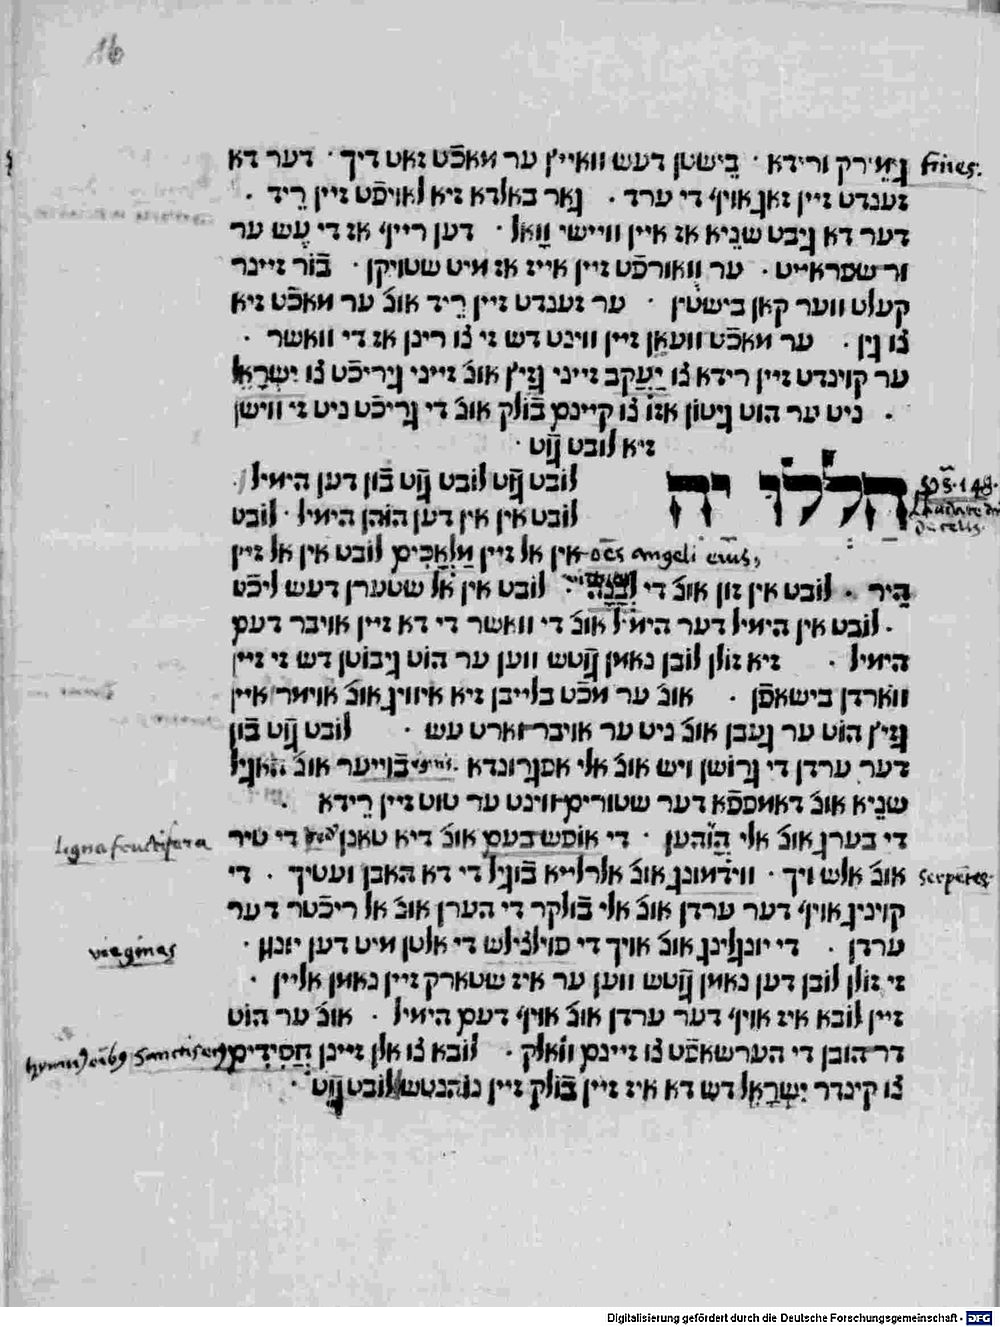 16
גימירק ורידא · בישטן דעש וואייץ ער מאכֿט זאט דיך · דער דא
fines.
זענדט זיין זאג אויף די ערד · גאר באלדא זיא לאויפֿט זיין ריד ·
דער דא גיבט שניא אז איין ווײשי וואל · דען רייף אז די עש ער
ור שפראייט · ער ווארפֿט זיין אייז אז מיט שטויקן · בֿור זיינר
קעלט ווער קאן בישטין · ער זענדט זיין ריד אונ׳ ער מאכֿט זיא
צו גין · ער מאכֿט וועאן זיין ווינט דש זי צו רינן אז די וואשר ·
ער קוינדט זיין רידא צו יַעֲקב זייני גזיץ אונ׳ זייני גיריכֿט צו יִשְׂרָאֵל
· ניט ער הוט גיטון אזו צו קיינם בֿולק אונ׳ די גריכֿט ניט זי ווישן
זיא לובט גוֿט ·
הללו יה
ps. 148.
לובט גוֿט לובט גוֿט בֿון דען הימיל
לובט אין אין דען הוהן הימיל · לובט
אין אל זיין מַלְאָכִים לובט אין אל זיין
oes angeli eius,
היר · לובט אין זון אונ׳ די לְבָנָה · לובט אין אל שטערן דעש ליכֿט
· לובט אין הימיל דער הימיל אונ׳ די וואשר די דא זיין אויבר דעם
הימיל · זיא זולן לובן נאמן גוֿטש ווען ער הוט גיבוטן דש זי זיין
ווארדן בישאפֿן · אונ׳ ער מכֿט בלייבן זיא איוויג אונ׳ אוימר איין
גזיץ הוט ער געבן אונ׳ ניט ער אויבר ווארט עש · לובט גוֿט בֿון
דער ערדן די גרושן ויש אונ׳ אלי אפגרונדא · בֿוייער אונ׳ האגיל
שניא אונ׳ דאמפפֿא דער שטורים ווינט ער טוט זיין רידא ·
די בערג אונ׳ אלי הוהען · די אופש בעם אונ׳ דיא טאנן די טיר
ligna fructifera
אונ׳ אלש ויך · ווידמונג אונ׳ אלרלייא בֿוגיל די דא האבן ועטיך · די
serpetes
קוינינג אויף דער ערדן אונ׳ אלי בֿולקר די הערן אונ׳ אל ריכֿטר דער
ערדן · די יונגלינג אונ׳ אויך די פוילצילש די אלטן מיט דען יונגן ·
virgines
זי זולן לובן דען נאמן גוֿטש ווען ער איז שטארק זיין נאמן אליין ·
זיין לובא איז אויף דער ערדן אונ׳ אויף דעם הימיל · אונ׳ ער הוט
דר הובן די הערשאפֿט צו זיינם וואלק · לובא צו אלן זיינן חֲסִידִים
צו קינדר יִשְׂרָאֵל דש דא איז זיין בֿולק זיין נוהנטש לובט גוֿט ·